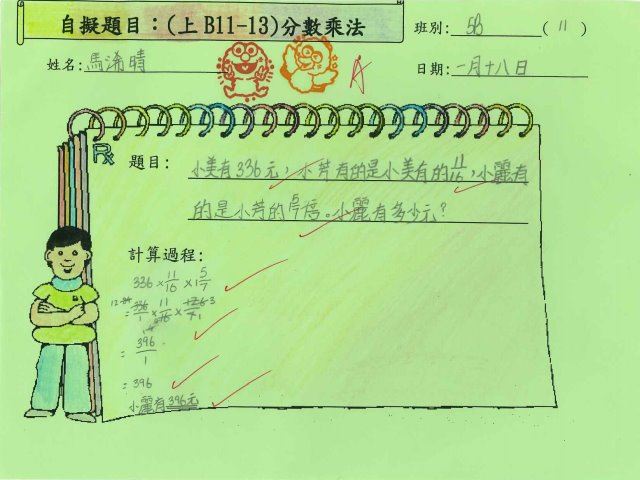 自擬題目：(上 B11-13)分數乘法
班別：5B (11)
姓名：馬浠晴
日期：一月十八日
A
題目：小美有336元，小芳有的是小美有的11/16，小麗有
的是小芳的 倍。小麗有多少元？
計算過程：
336×11/16×1 5/7
=336/1×11/16×12/7
=396/1
=396
小麗有396元